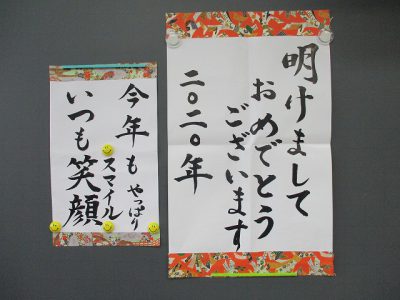 明けまして
おめでとう
ございます
二〇二〇年
今年もやっぱり
スマイル
いつも笑顔